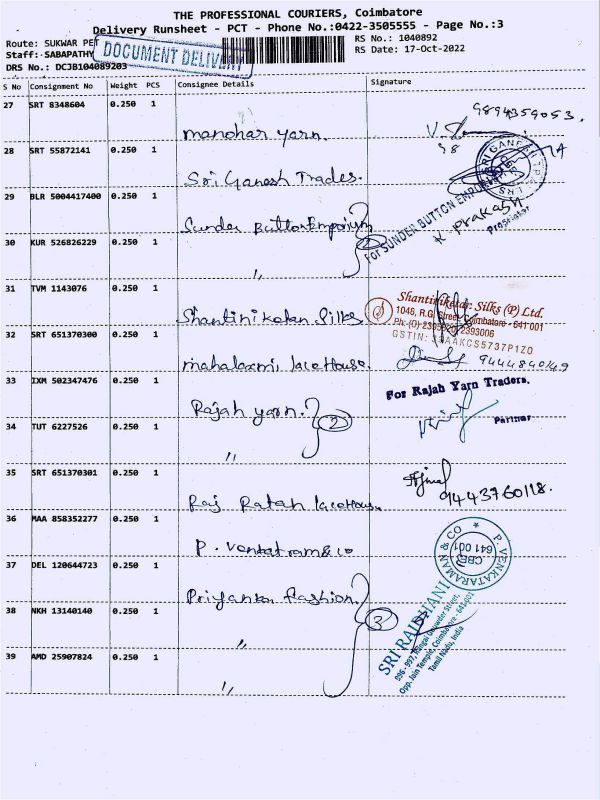 THE PROFESSIONAL COURIERS, Coimbatore
Delivery Runsheet - PCT - Phone No.:0422-3505555 - Page No.:3
Route: SUKWAR PET
RS No.: 1040892
Staff: SABAPATHY
DOCUMENT DELIVERY
RS Date: 17-Oct-2022
DRS No.: DCJB104089203
S No Consignment No Weight PCS Consignee Details Signature
27 SRT 8348604 0.250 1
manohar yarn.
9894359053.
98
28 SRT 55872141 0.250 1
Sri Ganesh Trades.
29 BLR 5004417400 0.250 1
Sunder Button Emporium
For SUNDER BUTTON EMPORIUM
K Prakash
Proprietor
30 KUR 526826229 0.250 1
〃 2
31 TVM 1143076 0.250 1
Shantiniketan Silks
Shantiniketan Silks (P) Ltd.
1046, R.G. Street, Coimbatore - 641 001
32 SRT 651370300 0.250 1
mahalaxmi lace House.
9444840149
33 IXM 502347476 0.250 1
Rajah yarn.
For Rajah Yarn Traders.
Partner
34 TUT 6227526 0.250 1
〃 2
35 SRT 651370301 0.250 1
Raj Ratan lace House
9443760118.
36 MAA 858352277 0.250 1
P. Venkatram & co
P. VENKATARAMAN & CO
CBE
641 001
37 DEL 120644723 0.250 1
Priyanka Fashion
38 NKH 13140140 0.250 1
〃 3
SRI RAJDHANI
Opp. Jain Temple, Coimbatore - 641 001
Tamil Nadu, India
39 AMD 25907824 0.250 1
〃